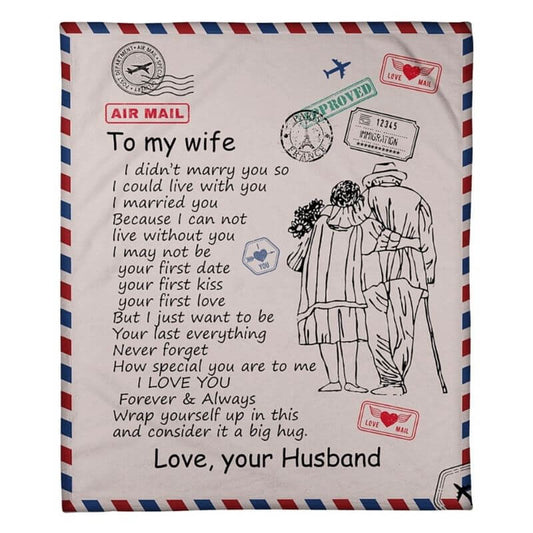 POST DEPARTMENT • AIR MAIL •
AIR MAIL
LOVE MAIL
APPROVED
PARIS
FRANCE
12345
IMMIGRATION
To my wife
I didn't marry you so
I could live with you
I married you
Because I can not
live without you
I may not be
your first date
your first kiss
your first love
But I just want to be
Your last everything
Never forget
How special you are to me
I LOVE YOU
Forever & Always
Wrap yourself up in this
and consider it a big hug.
Love, your Husband
I
YOU
LOVE MAIL